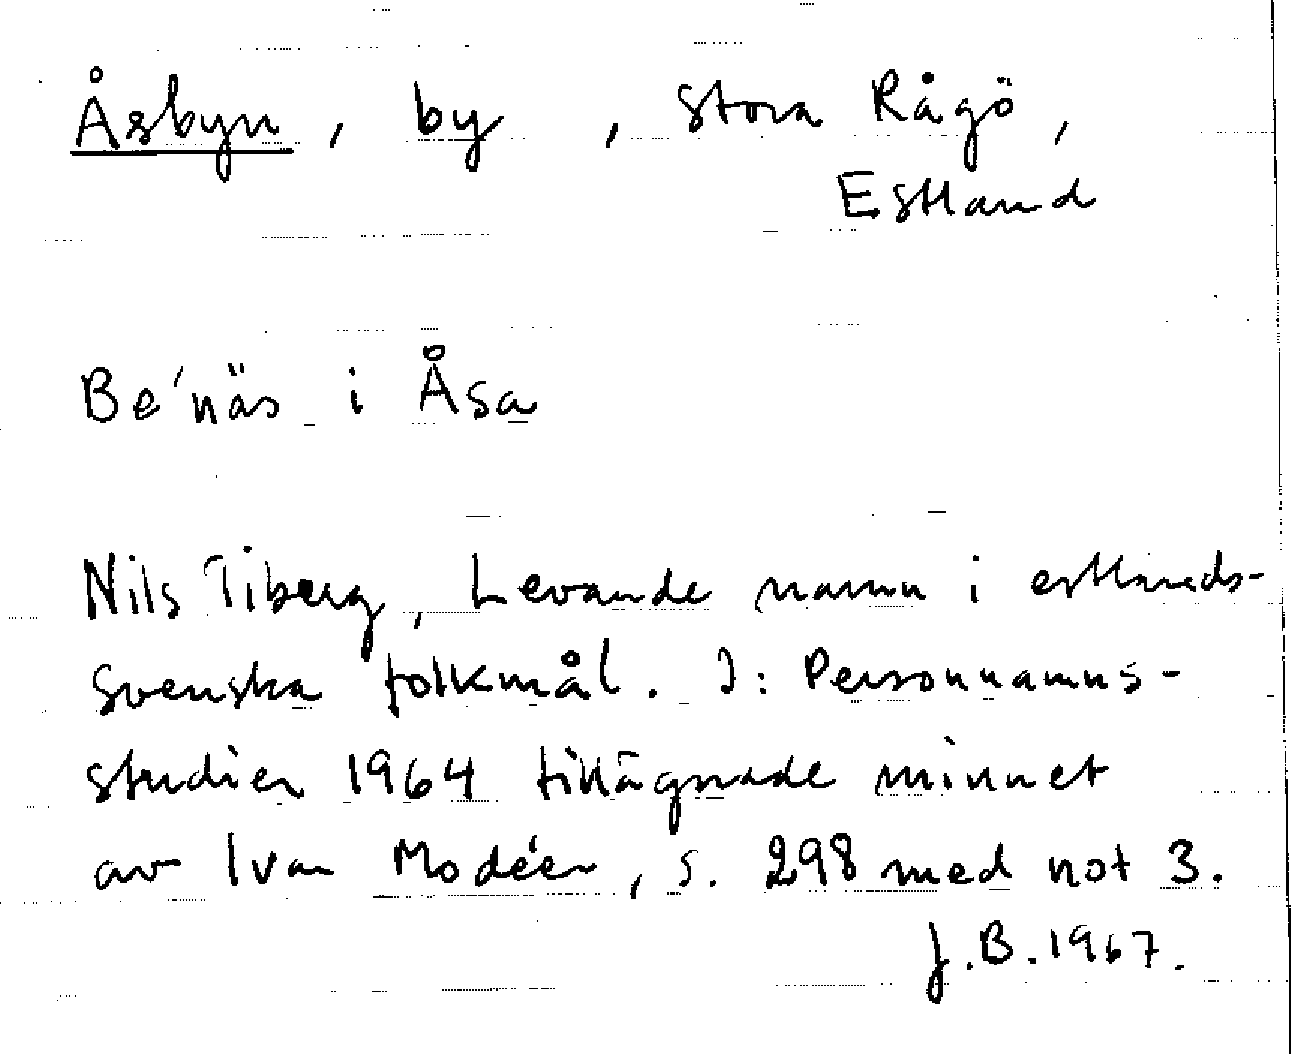 Åsbyn, by, Stora Rågö,
Estland
Be'näs i Åsa
Nils Tiberg, Levande namn i estlands-
svenska folkmål. I: Personnamns-
studier 1964 tillägnade minnet
av Ivar Modéer, s. 298 med not 3.
J.B. 1967.